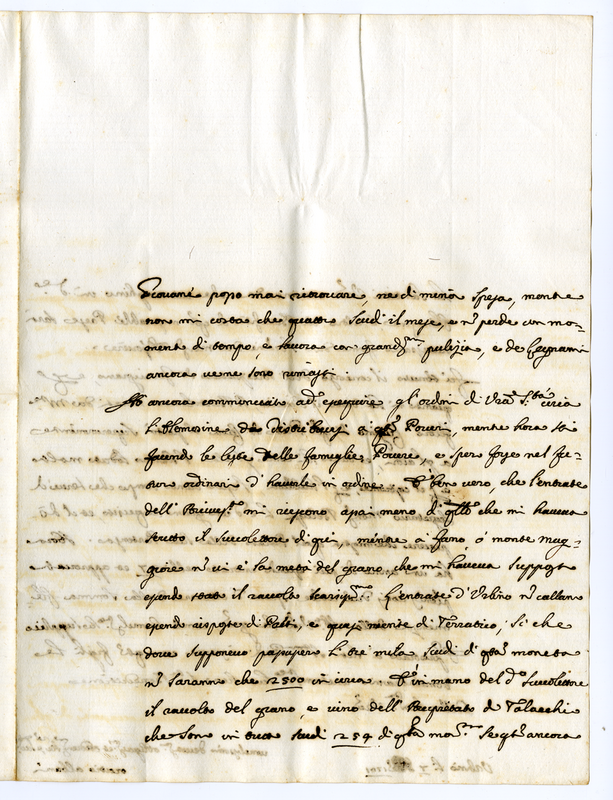 Giovane posso mai ritrovare, ne di minor spesa, mentre
non mi costa che quattro scudi il mese, e nõ perde un mo-
mento di tempo, e lavora con grandma pulizia, e de legnami
ancora ve ne sono rimasti.
Ho ancora communicato ad eseguire gl'ordini di Vra Sta circa
l'Elemosine da Distribuirsi a qti Poveri, mentre hora sto
facendo le liste delle famiglie Povere, e spero forse nel fu-
turo ordinario d'haverle in ordine. È ben vero, che l'entrate
dell' mi riescono assai meno di qllo che mi haveva
scritto il succollettore di qui, mentre a fano, ò monte mag-
giore nõ vi è la metà del grano, che mi haveva supposto
essendo stato il raccolto scarsismo. L'entrate d'Urbino nõ callan
essendo risposte di Case, e quasi niente di Terratico, si che
dove supponevo passassero li tre mila scudi di qta moneta
nõ saranno che 2500 in circa. È in mano del do Succollettore
il raccolto del grano, e vino dell' di Talacchi
che sono in tutto scudi 254 di qta monta Se qti ancora